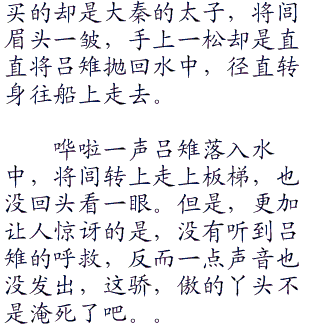 买的却是大秦的太子，将闾
眉头一皱，手上一松却是直
直将吕雉抛回水中，径直转
身往船上走去。
哗啦一声吕雉落入水
中，将闾转上走上板梯，也
没回头看一眼。但是，更加
让人惊讶的是，没有听到吕
雉的呼救，反而一点声音也
没发出，这骄，傲的丫头不
是淹死了吧。。